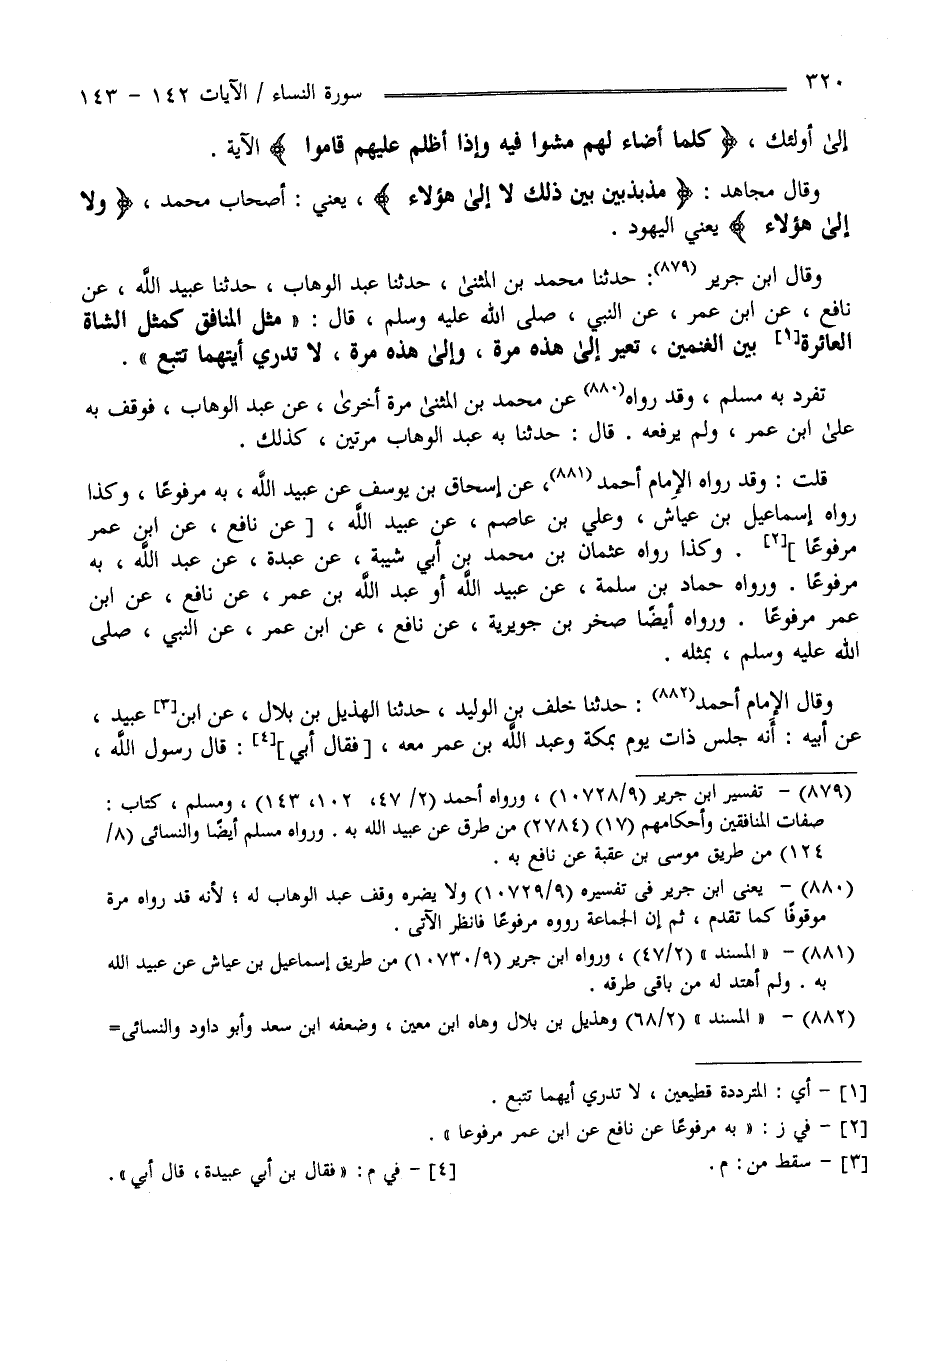 ٣٢٠ سورة النساء / الآيات ١٤٢ - ١٤٣
إلىٰ أولئك ، ﴿ كلما أضاء لهم مشوا فيه وإذا أظلم عليهم قاموا ﴾ الآية .
وقال مجاهد : ﴿ مذبذبين بين ذلك لا إلىٰ هؤلاء ﴾ ، يعني : أصحاب محمد ، ﴿ ولا
إلىٰ هؤلاء ﴾ يعني اليهود .
وقال ابن جرير (٨٧٩): حدثنا محمد بن المثنىٰ ، حدثنا عبد الوهاب ، حدثنا عبيد اللَّه ، عن
نافع ، عن ابن عمر ، عن النبي ، صلى الله عليه وسلم ، قال : « مثل المنافق كمثل الشاة
العائرة[١] بين الغنمين ، تعير إلىٰ هذه مرة ، وإلىٰ هذه مرة ، لا تدري أيتهما تتبع » .
تفرد به مسلم ، وقد رواه(٨٨٠) عن محمد بن المثنىٰ مرة أخرىٰ ، عن عبد الوهاب ، فوقف به
علىٰ ابن عمر ، ولم يرفعه . قال : حدثنا به عبد الوهاب مرتين ، كذلك .
قلت : وقد رواه الإمام أحمد(٨٨١)، عن إسحاق بن يوسف عن عبيد اللَّه ، به مرفوعًا ، وكذا
رواه إسماعيل بن عياش ، وعلي بن عاصم ، عن عبيد اللَّه ، [ عن نافع ، عن ابن عمر
مرفوعًا ][٢] . وكذا رواه عثمان بن محمد بن أبي شيبة ، عن عبدة ، عن عبد اللَّه ، به
مرفوعًا . ورواه حماد بن سلمة ، عن عبيد اللَّه أو عبد اللَّه بن عمر ، عن نافع ، عن ابن
عمر مرفوعًا . ورواه أيضًا صخر بن جويرية ، عن نافع ، عن ابن عمر ، عن النبي ، صلى
الله عليه وسلم ، بمثله .
وقال الإمام أحمد(٨٨٢) : حدثنا خلف بن الوليد ، حدثنا الهذيل بن بلال ، عن ابن[٣] عبيد ،
عن أبيه : أَنه جلس ذات يوم بمكة وعبد اللَّه بن عمر معه ، [فقال أبي][٤] : قال رسول اللَّه ،
(٨٧٩) - تفسير ابن جرير (١٠٧٢٨/٩) ، ورواه أحمد (٢/ ٤٧، ١٠٢، ١٤٣) ، ومسلم ، كتاب :
صفات المنافقين وأحكامهم (١٧) (٢٧٨٤) من طرق عن عبيد الله به . ورواه مسلم أيضًا والنسائى (٨/
١٢٤) من طريق موسى بن عقبة عن نافع به .
(٨٨٠) - يعنى ابن جرير فى تفسيره (١٠٧٢٩/٩) ولا يضره وقف عبد الوهاب له ؛ لأنه قد رواه مرة
موقوفًا كما تقدم ، ثم إن الجماعة رووه مرفوعًا فانظر الآتى .
(٨٨١) - « المسند » (٤٧/٢) ، ورواه ابن جرير (١٠٧٣٠/٩) من طريق إسماعيل بن عياش عن عبيد الله
به . ولم أهتد له من باقى طرقه .
(٨٨٢) - « المسند » (٦٨/٢) وهذيل بن بلال وهاه ابن معين ، وضعفه ابن سعد وأبو داود والنسائى=
[١] - أي : المترددة قطيعين ، لا تدري أيهما تتبع .
[٢] - في ز : « به مرفوعًا عن نافع عن ابن عمر مرفوعا » .
[٣] - سقط من : م. [٤] - في م : «فقال بن أبي عبيدة ، قال أبي» .